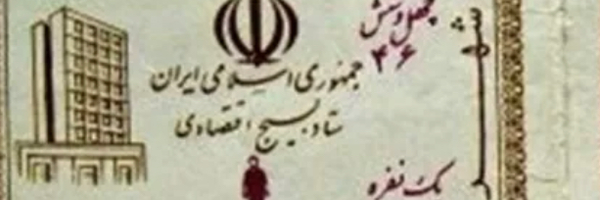 چهل و شش
۴۶
جمهوری اسلامی ایران
ستاد بسیج اقتصادی
یک نفره